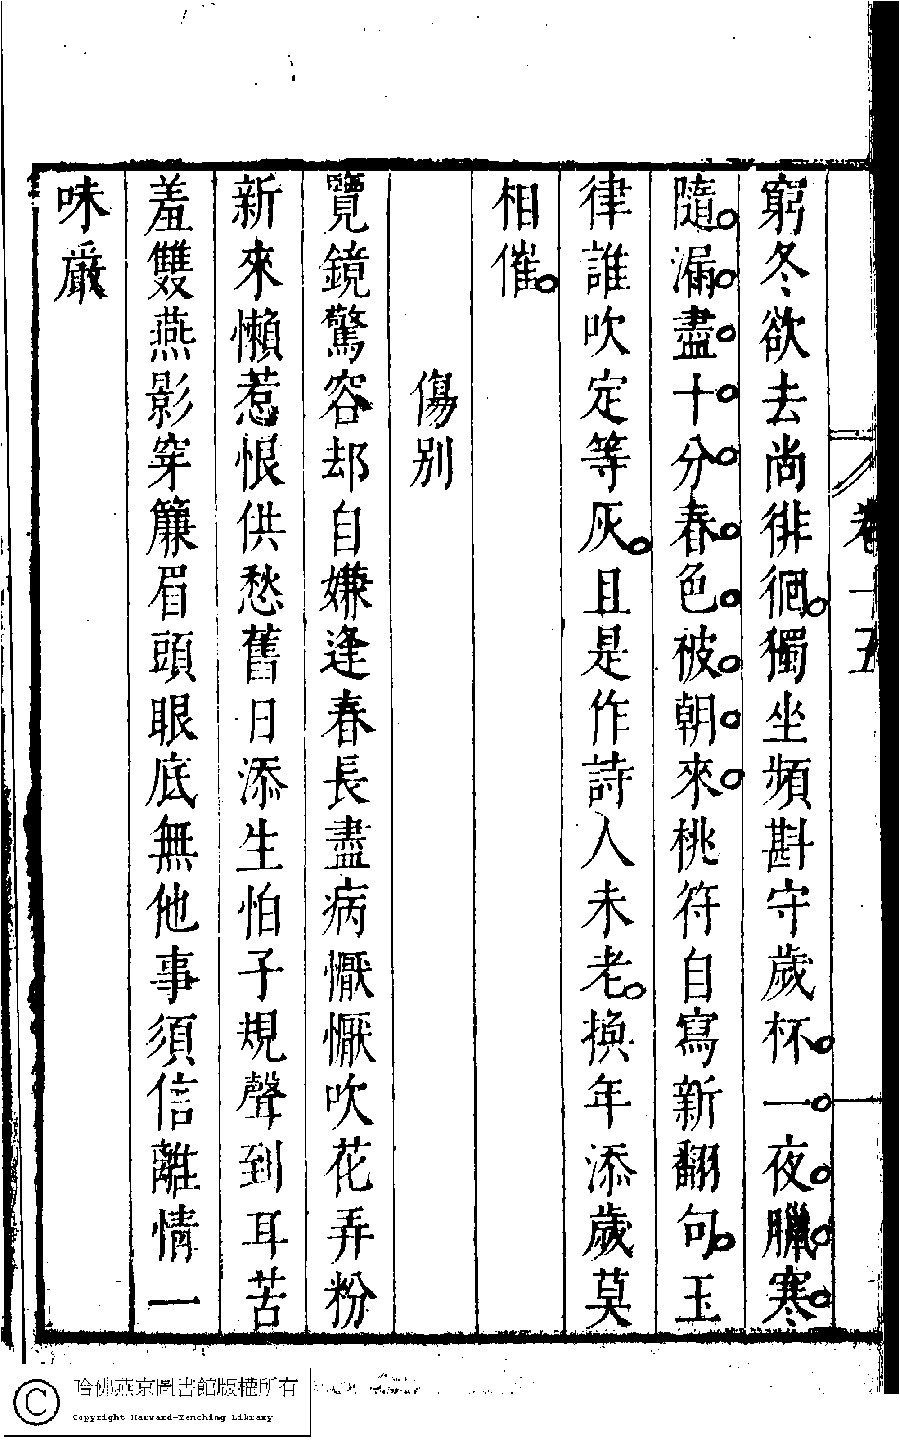 卷十五
窮冬欲去尚徘徊。獨坐頻斟守歲杯。一。夜。臘。寒。
隨。漏。盡。十。分。春。色。被。朝。來。桃符自寫新翻句。玉
律誰吹定等灰。且是作詩人未老。換年添歲莫
相催。
傷別
覽鏡驚容却自嫌逢春長盡病懨懨吹花弄粉
新來懶惹恨供愁舊日添生怕子規聲到耳苦
羞雙燕影穿簾眉頭眼底無他事須信離情一
味嚴
哈佛燕京圖書館版權所有
Copyright Harvard-Yenching Library